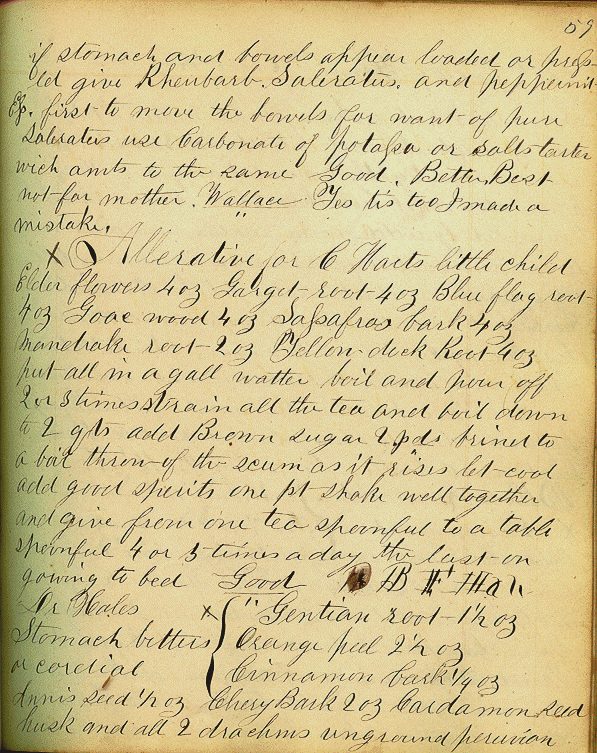 59
if stomach and bowels appear loaded or press-
ed give Rheubarb. Saleratus. and peppermint
Ep. first to move the bowels for want of pure
Saleratus use Carbonate of potassa or salts tarter
wich amts to the same Good. Better, Best
not for mother. Wallace Yes tis too I made a
mistake.
X Allerative for C Harts little child
Elder flowers 4 oz Garget root 4 oz Blue flag root
4 oz Goae wood 4 oz Sassafras bark 4 oz
Mandrake root 2 oz Yellow dock Root 4 oz
put all in a gall watter boil and pour off
2 or 3 times strain all the tea and boil down
to 2 qts add Brown sugar 2 pds bring to
a boil throw of the scum as it rises let cool
add good spirits one pt shake well together
and give from one tea spoonful to a table
spoonful 4 or 5 times a day the last on
gowing to bed Good
Dr Hales X " Gentian root 1½ oz
Stomach bitters Orange peel 2½ oz
or cordial Cinnamon bark ¼ oz
Annis seed ½ oz Chery Bark 2 oz Cardamon seed
husk and all 2 drachms unground peruvian